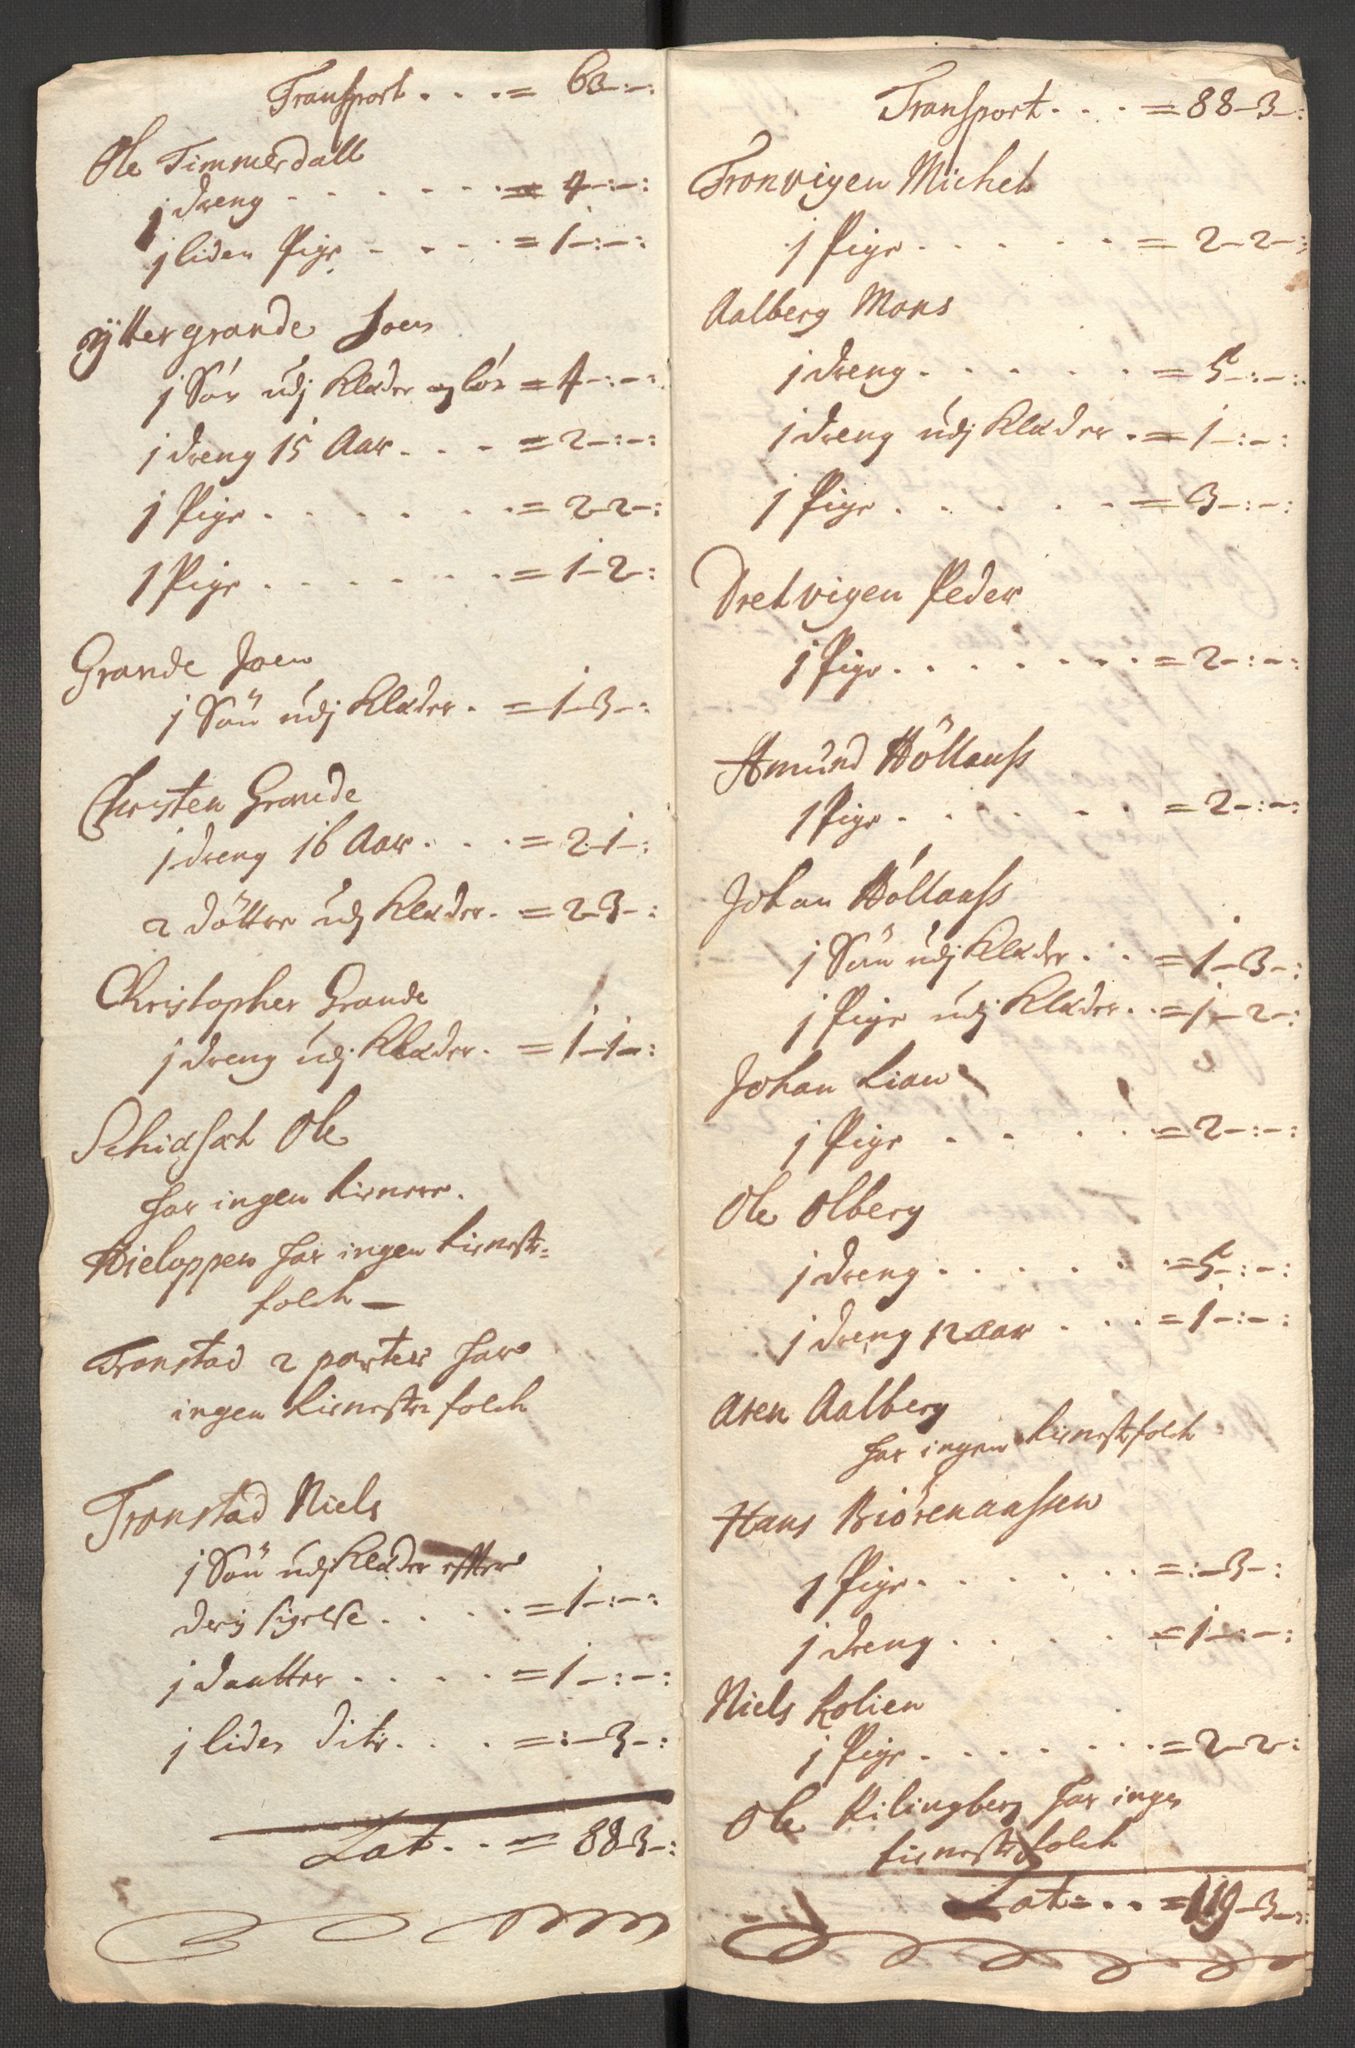 Transport . . . = 63 -:-:
Ole Timmerdall
j dreng . . . . . = 4 -:-:
j liden Pige . . . . = 1 -:-:
Yttergrande Joen
j Sön udj Klæder og Lön = 4 -:-:
j dreng 15 Aar . . . = 2 -:-:
j Pige . . . . . . = 2 - 2 -:
1 Pige . . . . . . = 1 - 2 -:
Grande Joen
j Sön udj Klæder . = 1 - 3 -:
Christen Grande
j dreng 16 Aar . . . = 2 - 1 -:
2 döttre udj Klæder . = 2 - 3 -:
Christopher Grande
j dreng udj Klæder . = 1 - 1 -:
Schidsæt Ole
har ingen tienere.
har ingen tieneste-
folch -
Tronstad 2 parter har
ingen tieneste folch
Tronstad Niels
j Sön udj Klæder efter
. . . . = 1 -:-:
j daatter . . . . = 1 -:-:
j liden dito . . . = :- 3 -:
Lat . . = 88 - 3 -:
Transport . . . = 88 - 3 -:
Tronvigen Michel
j Pige . . . . . = 2 - 2 -:
Aalberg Mons
j dreng . . . . . = 5 -:-:
j dreng udj Klæder . = 1 -:-:
j Pige . . . . . = 3 -:-:
Dretvigen Peder
j Pige . . . . . . . = 2 -:-:
Amund Höllaass
1 Pige . . . . . = 2 -:-:
Johan Höllaass
j Sön udj Klæder . . = 1 - 3 -:
j Pige udj Klæder . . = 1 - 2 -:
Johan Lian
j Pige . . . . = 2 -:-:
Ole Olberg
j dreng . . . . . = 5 -:-:
j dreng 12 aar . . . = 1 -:-:
Aren Aalberg
har ingen tienestfolch
Hans Biörenaassen
1 Pige . . . . . . = :- 3 -:
j dreng . . . . . = 1 -:-:
Niels Kolien
j Pige . . . . . . . = 2 - 2 -:
Ole Kilingberg har ingen
tieneste folch
Lat . . = 119 - 3 -: